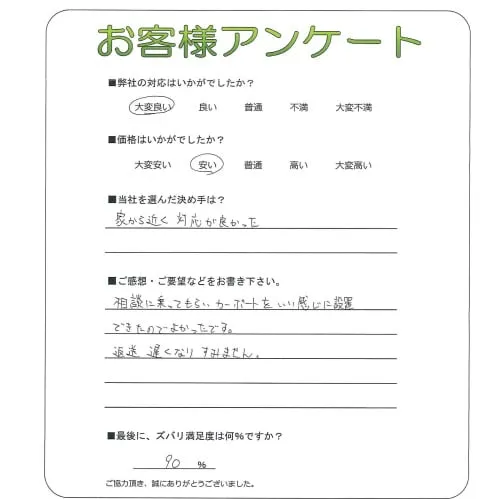 お客様アンケート
■弊社の対応はいかがでしたか？
大変良い 良い 普通 不満 大変不満
■価格はいかがでしたか？
大変安い 安い 普通 高い 大変高い
■当社を選んだ決め手は？
家から近く 対応が良かった
■ご感想・ご要望などをお書き下さい。
相談に乗ってもらいカーポートをいい感じに設置
できたのでよかったです。
返送 遅くなりすみません。
■最後に、ズバリ満足度は何%ですか？
90 %
ご協力頂き、誠にありがとうございました。